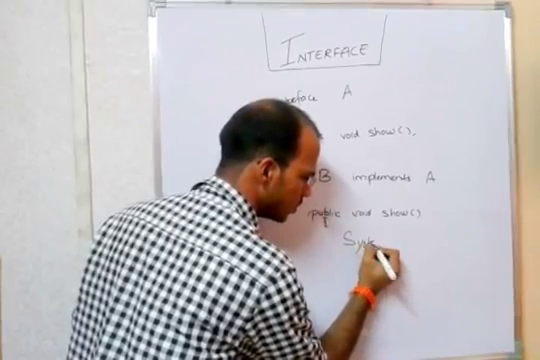 INTERFACE
A
void show();
B implements A
public void show()
{
Syste